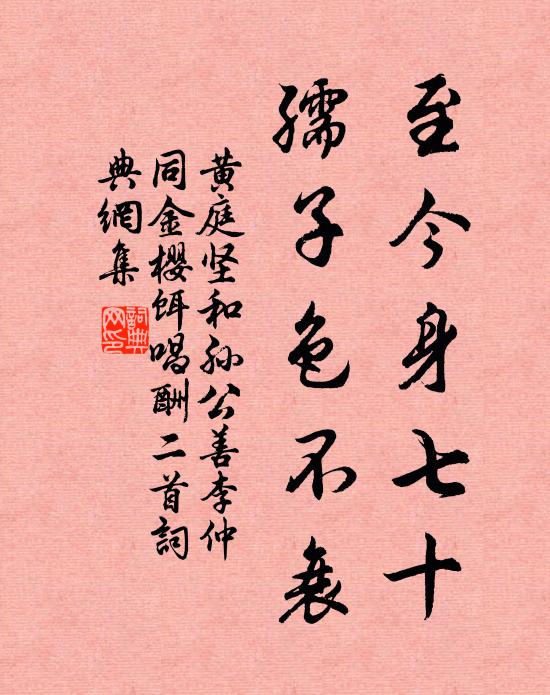 至今身七十
孺子色不衰
黄庭坚和孙公善李仲
同金櫻餌唱酬二首詞
典網集
詞典網印